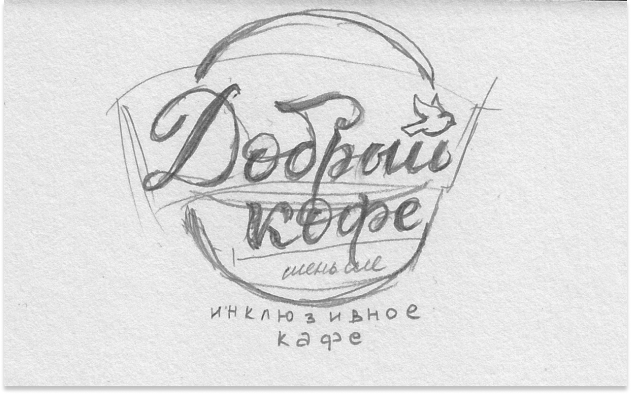 Добрый
кофе
меньше
инклюзивное
кафе